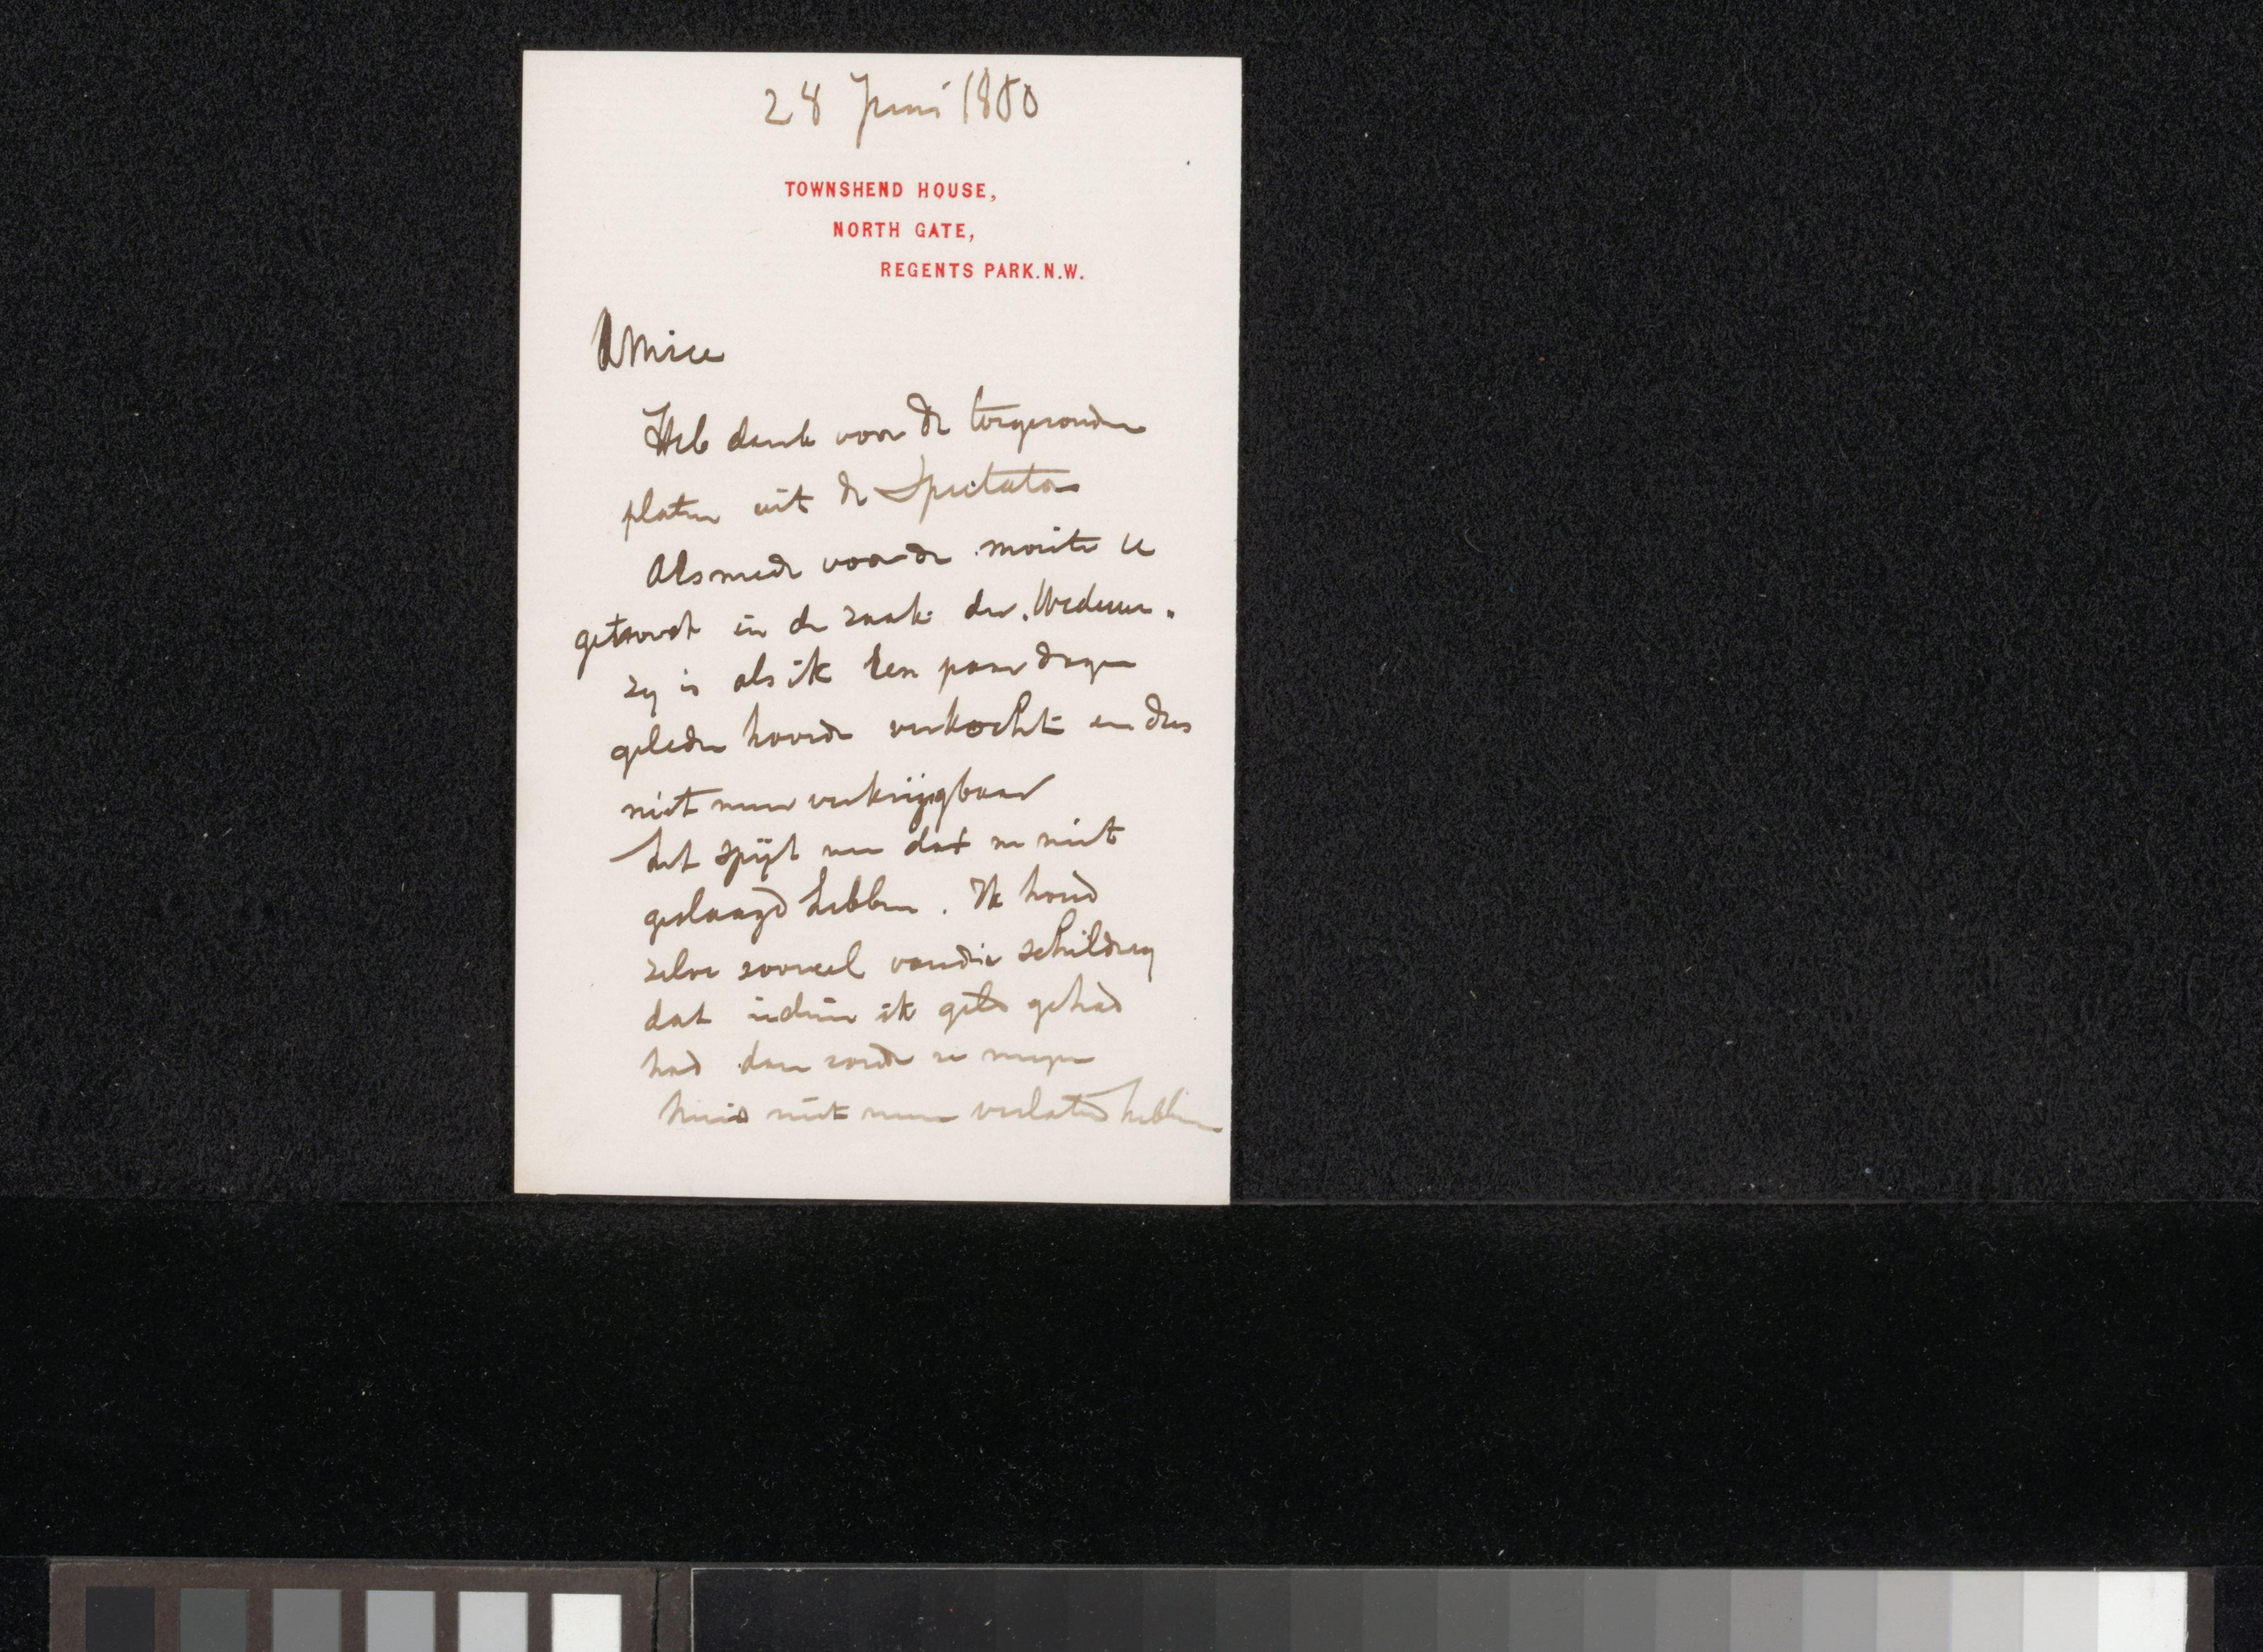 28 Juni 1880
TOWNSHEND HOUSE,
NORTH GATE,
REGENTS PARK.N.W.
Amice
Heb dank voor de toegezonden
platen uit de Spectator
Alsmede voor de moeite u
getroost in de zaak der "Weduwe"
zy is als ik een paar dagen
geleden hoorde verkocht en dus
niet meer verkrijgbaar
het spijt me dat we niet
geslaagd hebben. Ik houd
zelve zooveel van die schildery
dat indien ik geld gehad
had dan zoude ze mijn
huis niet meer verlaten hebben